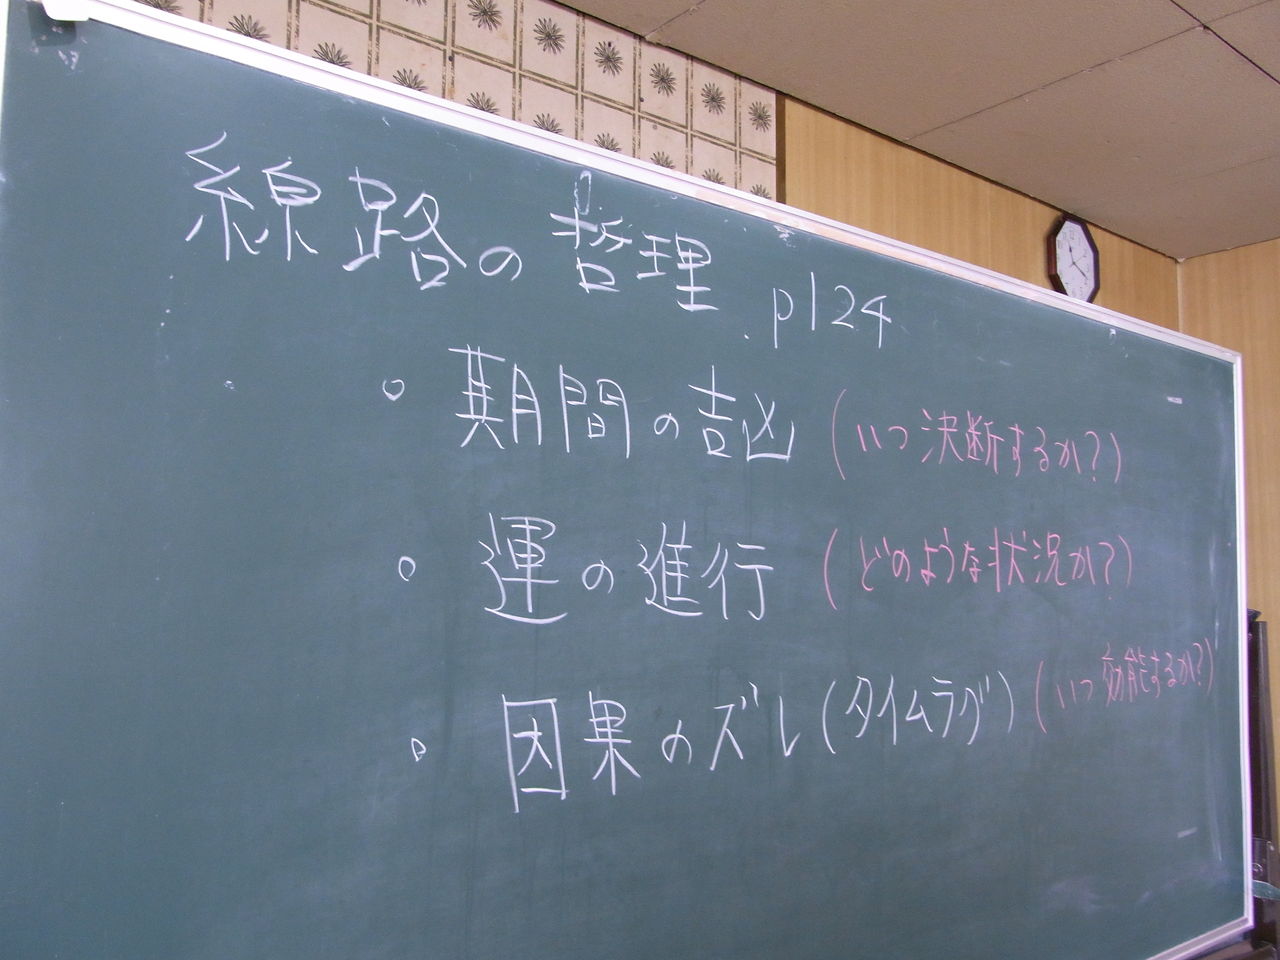 線路の哲理 p124
○ 期間の吉凶 (いつ決断するか?)
○ 運の進行 (どのような状況か?)
○ 因果のズレ(タイムラグ) (いつ効能するか?)